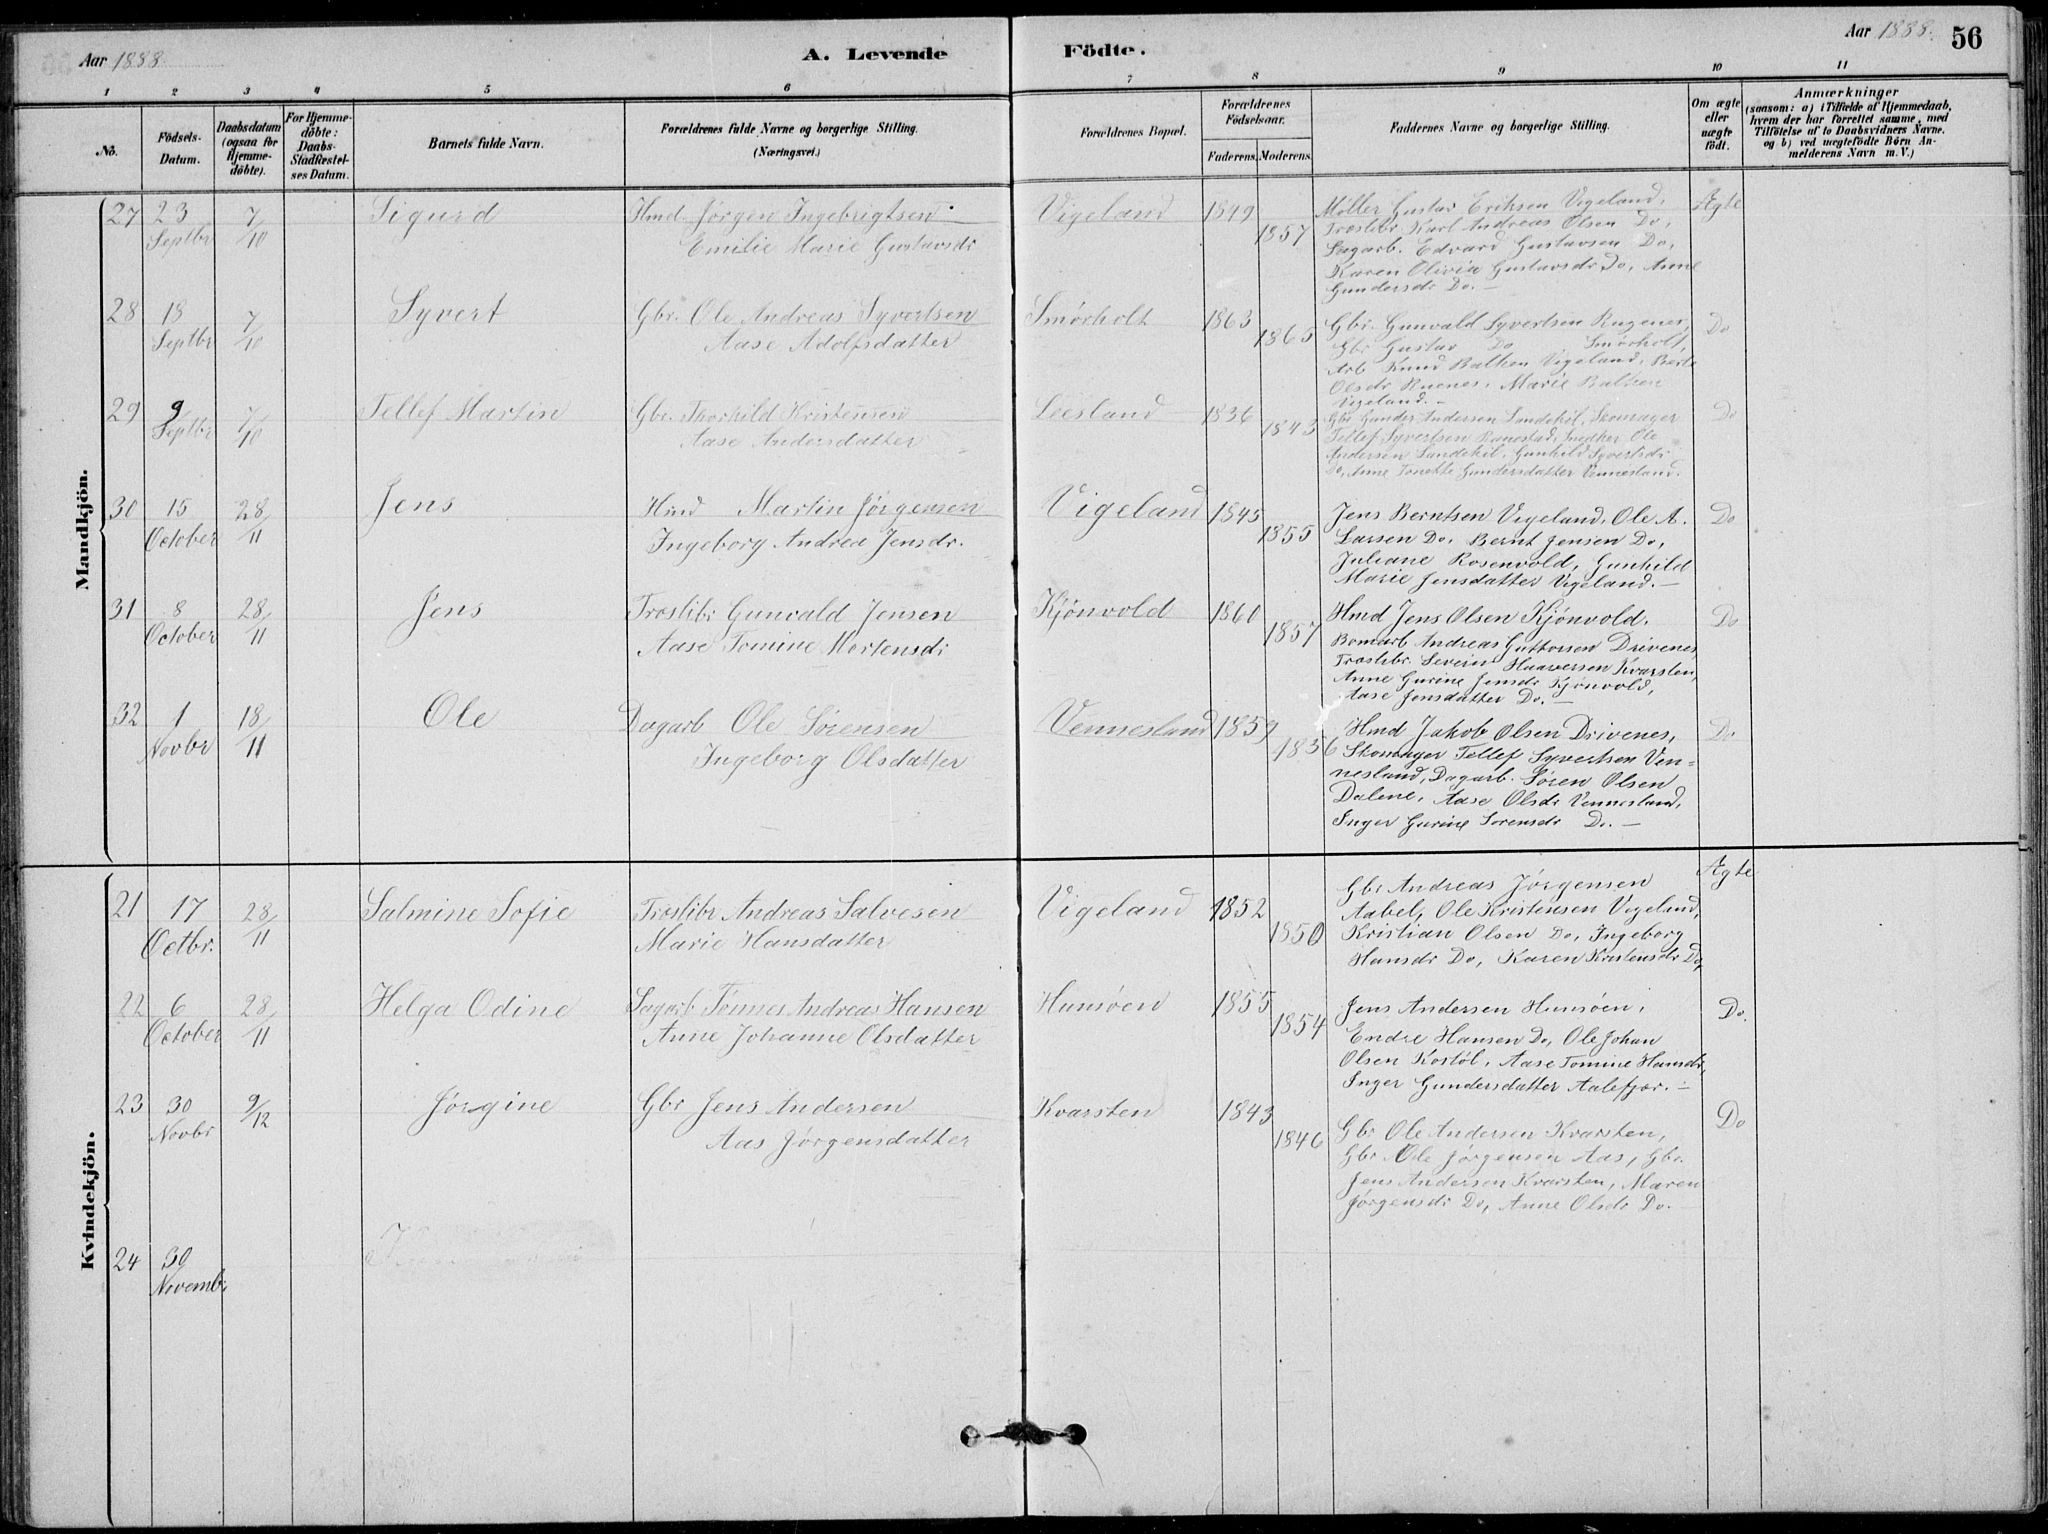 Aar 1888.
A. Levende Födte.
Aar 1888.
56
1 2 3 4 5 6 7 8 9 10 11
No.
Födsels-Datum.
Daabsdatum (ogsaa for Hjemmedöbte).
For Hjemmedöbte: Daabs-Stadfæstelses Datum.
Barnets fulde Navn.
Forældrenes fulde Navne og borgerlige Stilling. (Næringsvei.)
Forældrenes Bopæl.
Forældrenes Födselsaar.
Faderens. Moderens.
Faddernes Navne og borgerlige Stilling.
Om ægte eller uægte födt.
Anmærkninger (saasom: a) i Tilfælde af Hjemmedaab, hvem der har forrettet samme, med Tilföielse af to Daabsvidners Navne. og b) ved uægtefödte Börn Anmelderens Navn m. V.)
Mandkjön.
27 23 Septbr 7/10 Sigurd
Hmd. Jørgen Ingebrigtsen
Emilie Marie Gustavsdr
Vigeland 1849 1857
Møller Gustav Eriksen Vigeland,
Træslibr. Karl Andreas Olsen Do,
Sagarb. Edvard Gustavsen Do,
Karen Olivia Gustavsdr Do, Anne
Gundersdr Do. —
Ægte
28 18 Septbr 7/10 Syvert
Gbr. Ole Andreas Syvertsen
Aase Adolfsdatter
Smørholt 1863 1865
Gbr. Gunvald Syvertsen
Gbr Gustav Do Smørholt,
Arb Knud Balken Vigeland,
Olsdr Marie Balken
Vigeland. —
Do
29 9 Septbr 7/10 Tellef Martin
Gbr. Thorkild Kristensen
Aase Andersdatter
Leesland 1836 1843
Gbr Gunder Andersen Skomager
Tellef Syvertsen Ole
Andersen Gunhild Syvertsdr
Do, Anne Tonette Gundersdatter Vennesland.
Do
30 15 October 28/11 Jens
Hmd Martin Jørgensen
Ingeborg Andrea Jensdr.
Vigeland 1845 1855
Jens Berntsen Vigeland, Ole A.
Larsen Do, Bernt Jensen Do,
Juliane Rosenvold, Gunhild
Marie Jensdatter Vigeland. —
Do
31 8 October 28/11 Jens
Træslibr Gunvald Jensen
Aase Tomine Mortensdr
Kjönvold 1860 1857
Hmd Jens Olsen Kjönvold.
Bomarb Andreas Guttorsen Drivenes
Træslibr. Severin Haaversen Kvarsten,
Anne Gurine Jensdr Kjönvold,
Aase Jensdatter Do. —
Do
32 1 Novbr 18/11 Ole
Dagarb Ole Sörensen
Ingeborg Olsdatter
Vennesland 1859 1856
Hmd Jakob Olsen Drivenes,
Skomager Tellef Syvertsen Ven=
nesland, Dagarb. Sören Olsen
Dalene, Aase Olsdr Vennesland,
Inger Gurine Sorensdr Do. —
Do
Kvindekjön.
21 17 Octbr. 28/11 Salmine Sofie
Træslibr Andreas Salvesen
Marie Hansdatter
Vigeland 1852 1850
Gbr Andreas Jörgensen
Aabel, Ole Kristensen Vigeland,
Kristian Olsen Do, Ingeborg
Hansdr Do, Karen Kristensdr Do,
Ægte
22 6 October 28/11 Helga Odine
Sagarb Tönnes Andreas Hansen
Anne Johanne Olsdatter
Hunsöen 1855 1854
Jens Andersen Hunsöen,
Endre Hansen Do, Ole Johan
Olsen Kostöl, Aase Tomine Hansdr,
Inger Gundersdatter Aalefjær. —
Do.
23 30 Novbr 9/12 Jørgine
Gbr Jens Andersen
Aas Jørgensdatter
Kvarsten 1843 1846
Gbr Ole Andersen Kvarsten,
Gbr. Ole Jørgensen Aas, Gbr.
Jens Andersen Kvarsten, Maren
Jørgensdr Do, Anne Olsdr Do. —
Do
24 30 Novembr